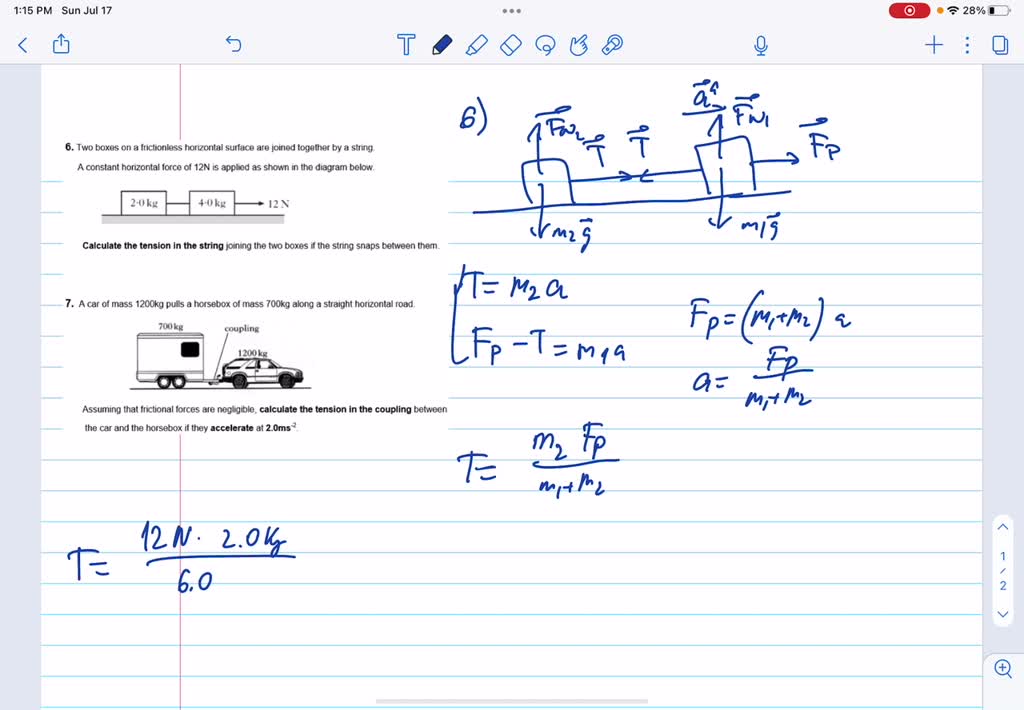 1:15 PM Sun Jul 17
28%
T
6. Two boxes on a frictionless horizontal surface are joined together by a string.
A constant horizontal force of 12N is applied as shown in the diagram below.
2·0 kg
4·0 kg
12 N
Calculate the tension in the string joining the two boxes if the string snaps between them.
7. A car of mass 1200kg pulls a horsebox of mass 700kg along a straight horizontal road.
700 kg
coupling
1200 kg
Assuming that frictional forces are negligible, calculate the tension in the coupling between
the car and the horsebox if they accelerate at 2.0ms⁻².
6)
F⃗N2
T⃗
T⃗
a⃗
F⃗N1
F⃗p
m2g⃗
m1g⃗
T = m2 a
Fp - T = m1 a
Fp = (m1 + m2) a
a = Fp / m1 + m2
T = m2 Fp / m1 + m2
T = 12 N · 2.0 Kg / 6.0
1
/
2